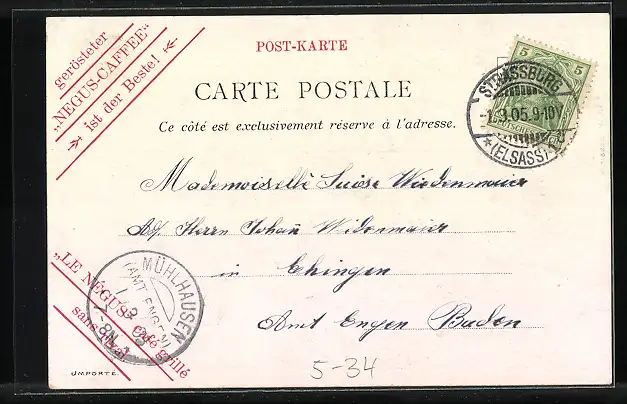 gerösteter
„NEGUS-CAFFEE“
ist der Beste!
POST-KARTE
CARTE POSTALE
Ce côté est exclusivement réserve à l'adresse.
5 5
STRASSBURG
1.3.05.9-10V
*(ELSASS)1
Mademoiselle Luise Wiedenmaier
Ad. Herrn Johañ Widemaier
in Ehingen
Amt Engen Baden
„LE NÉGUS“ Café grillé
sans rival
MÜHLHAUSEN
(AMT ENGEN)
5-34
JMPORTÉ.